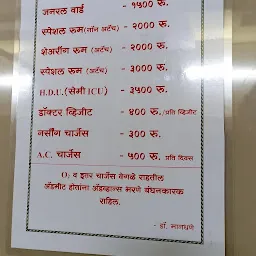 जनरल वार्ड - १५०० रु.
स्पेशल रुम (नॉन अटॅच) - २००० रु.
शेअरींग रुम (अटॅच) - २००० रु.
स्पेशल रुम (अटॅच) - ३००० रु.
H.D.U.(सेमी ICU) - ३५०० रु.
डॉक्टर व्हिजीट - ४०० रु./प्रति व्हिजीट
नर्सींग चार्जेस - ३०० रु.
A.C. चार्जेस - ५०० रु. प्रति दिवस
O₂ व इतर चार्जेस वेगळे राहतील
अ‍ॅडमीट होतांना अ‍ॅडव्हान्स भरणे बंधनकारक
राहिल.
- डॉ.